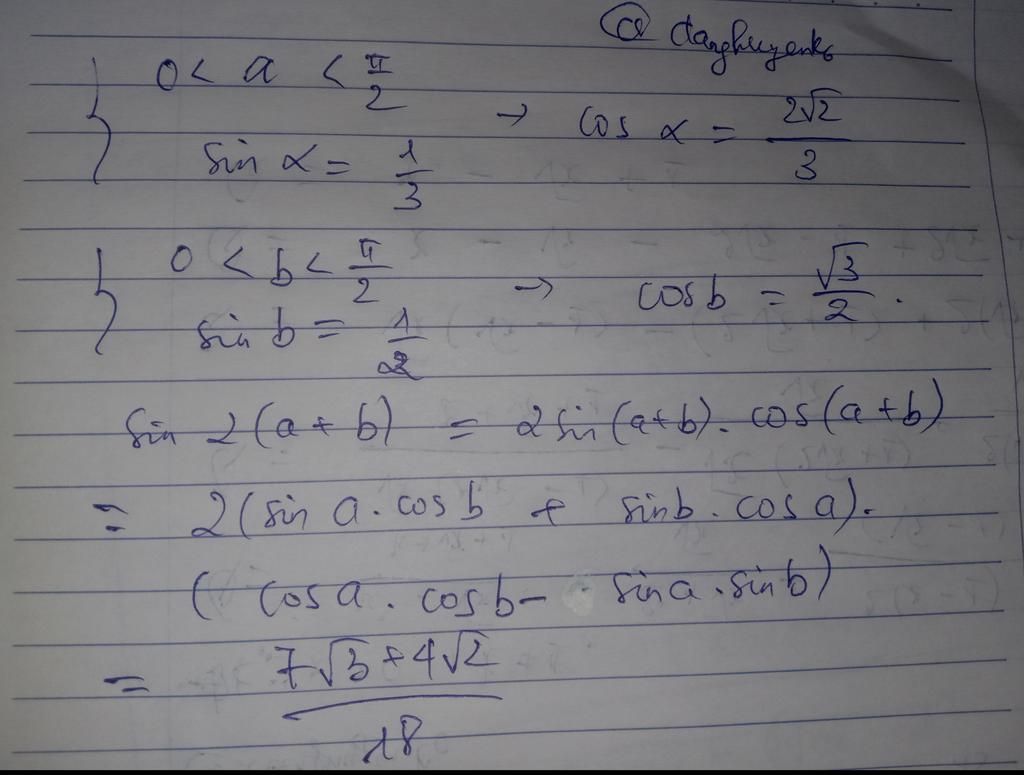 @ danghuyenk6
0 < a < π/2
sin α = 1/3 → cos α = 2√2/3
0 < b < π/2
sin b = 1/2 → cos b = √3/2.
sin 2(a + b) = 2 sin (a+b). cos(a+b)
= 2(sin a. cos b + sin b. cos a).
( cos a. cos b - sin a. sin b)
= 7√3+4√2/18